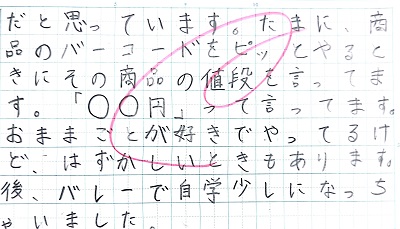 だと思っています。たまに、商
品のバーコードをピッとやると
きにその商品の値段を言ってま
す。「〇〇円」って言ってます。
おままごとが好きでやってるけ
ど、はずかしいときもあります。
後、バレーで自学少しになっち
ゃいました。